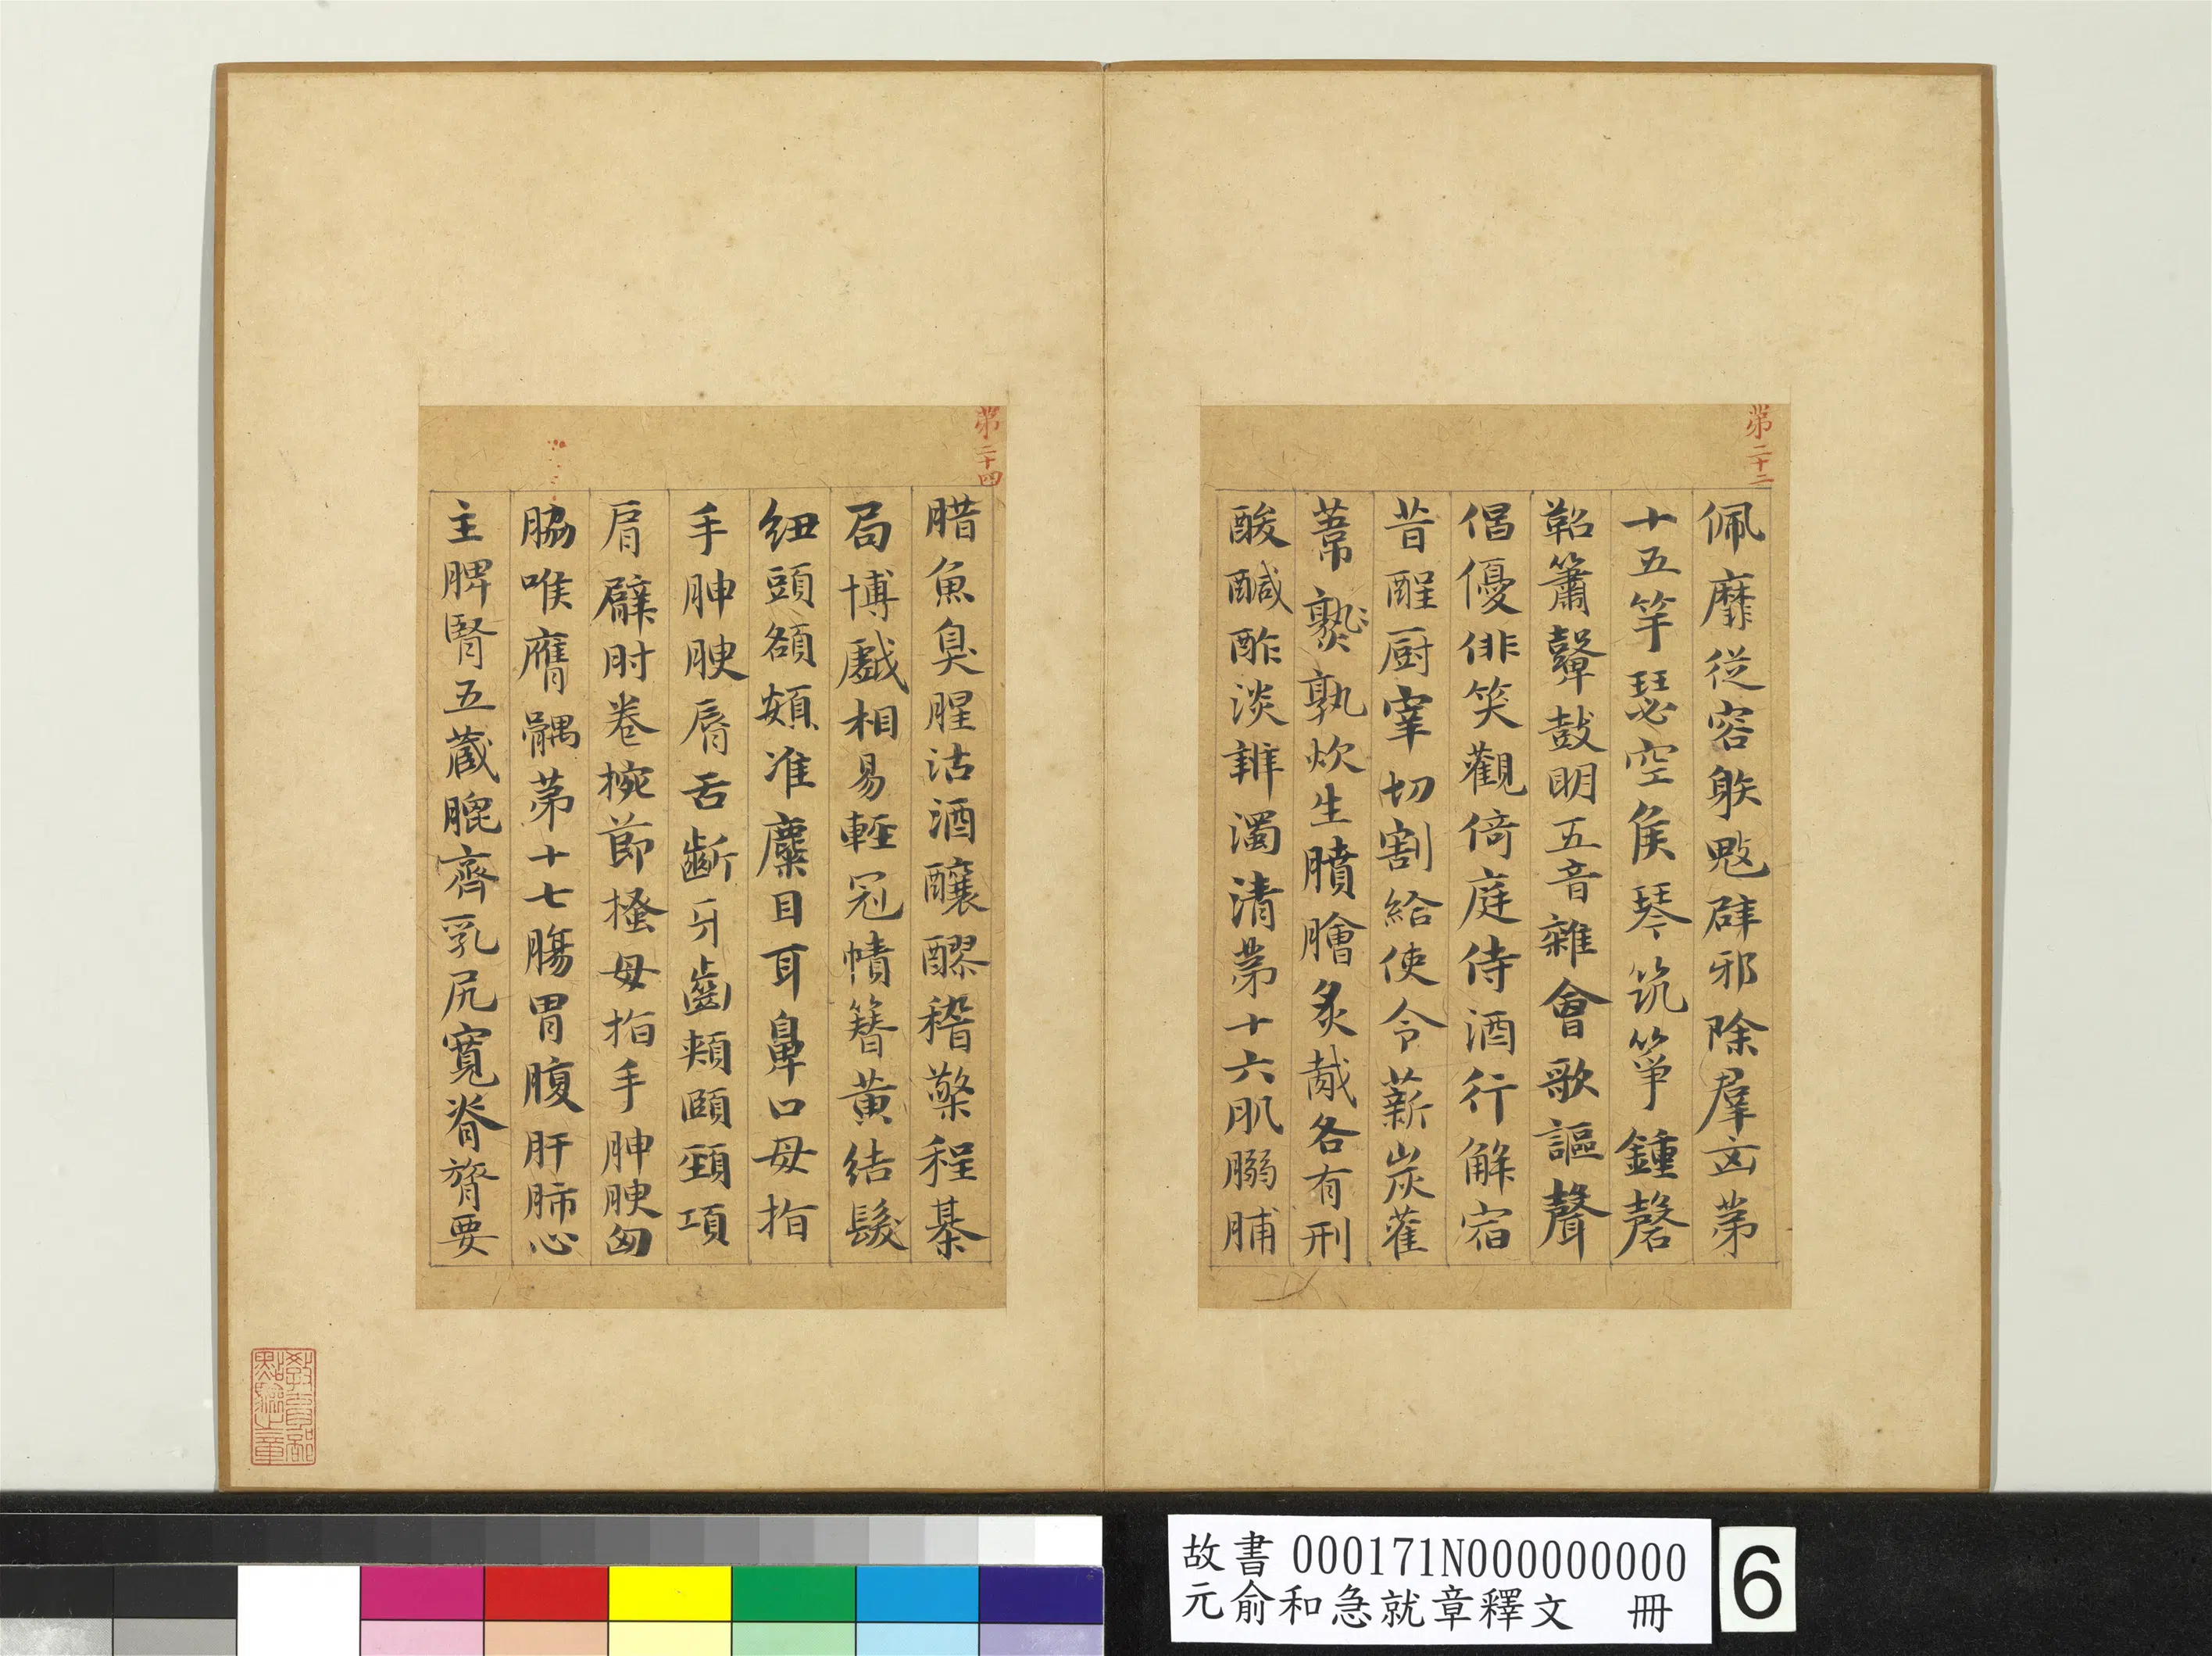 第二十二
佩靡從容射鬾辟邪除羣凶苐
十五竽瑟空侯琴筑箏鍾磬
鞀簫鼙鼓明五音雜會歌謳聲
倡優俳笑觀倚庭侍酒行觧宿
昔酲厨宰切割給使令薪炭萑
葦孰炊生膹膾炙胾各有刑
酸醎酢淡辨濁清苐十六肌腏脯
第二十四
腊魚臭腥沽酒釀醪稽檠程棊
局博戲相易輕冠幘簪黄結髮
紐頭頟頞准麋目耳鼻口毋指
手胂腴脣舌齗牙齒頰頤頸項
肩臂肘卷捥節搔母指手胂腴匈
脇喉膺髃苐十七腸胃腹肝肺心
主脾腎五藏膍齊乳尻寬脊膂要
教育部點驗之章
故書 000171N000000000
元俞和急就章釋文 冊
6